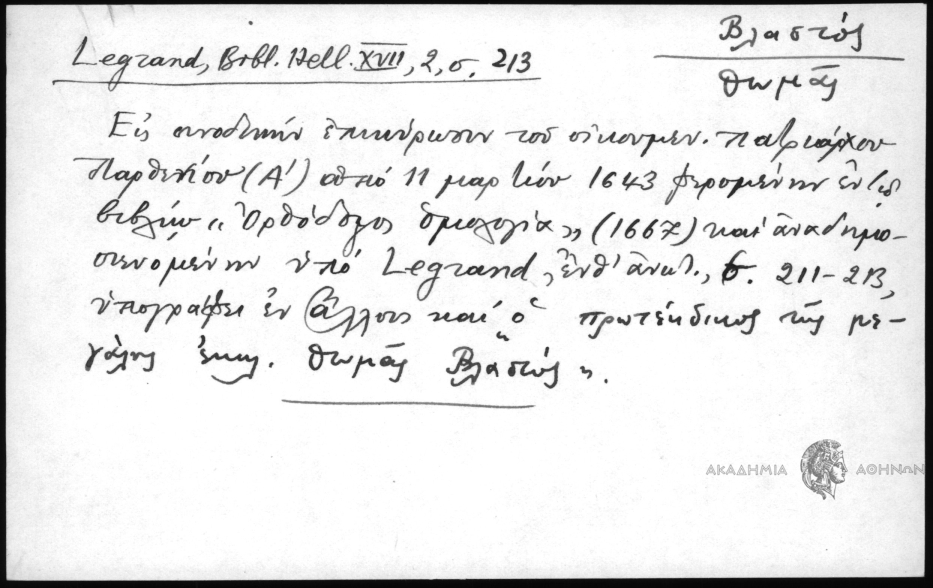 Βλαστός
Θωμᾶς
Legrand, Bibl. Hell. XVII, 2, σ. 213
Εἰς συνοδικὴν ἐπικύρωσιν τοῦ οἰκουμεν. πατριάρχου
Παρθενίου (Α΄) ἀπὸ 11 μαρτίου 1643 φερομένην ἐν τῷ
βιβλίῳ „Ὀρθόδοξος ὁμολογία„ (1667) καὶ ἀναδημο-
σιευομένην ὑπὸ Legrand, ἔνθ' ἀνωτ., σ. 211-213,
ὑπογράφει ἐν ἄλλοις καὶ „ὁ πρωτέκδικος τῆς με-
γάλης ἐκκλ. Θωμᾶς Βλαστός„.
ΑΚΑΔΗΜΙΑ ΑΘΗΝΩΝ